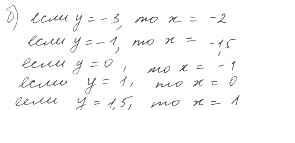 б) если y = -3, то x = -2
если y = -1, то x = -1,5
если y = 0, то x = -1
если y = 1, то x = 0
если y = 1,5, то x = 1